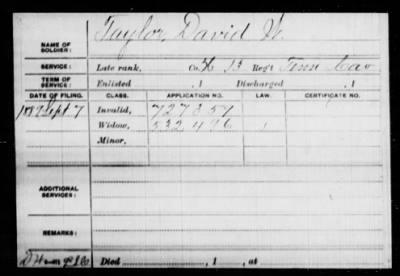 NAME OF SOLDIER: Taylor, David W.
SERVICE: Late rank, Co. 13 Reg't Tenn Cav
TERM OF SERVICE: Enlisted , 1 Discharged , 1
DATE OF FILING. CLASS. APPLICATION NO. LAW. CERTIFICATE NO.
Sept 7 Invalid, 727357
Widow, 532496
Minor,
ADDITIONAL SERVICES:
REMARKS:
Died , 1 , at